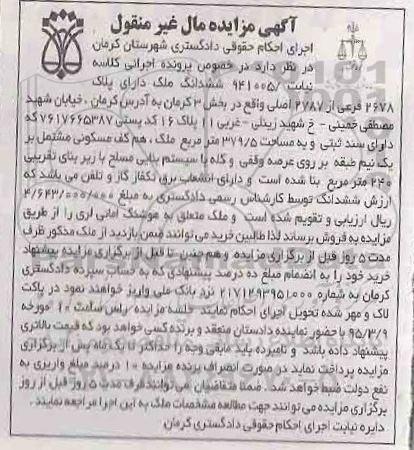 آگهی مزایده مال غیر منقول
اجرای احکام حقوقی دادگستری شهرستان کرمان
در نظر دارد در خصوص پرونده اجرائی کلاسه
نیابت /۹۴۱۰۰۵ ششدانگ ملک دارای پلاک
۲۶۷۸ فرعی از ۲۷۸۷ اصلی واقع در بخش ۳ کرمان به آدرس کرمان ، خیابان شهید
مصطفی خمینی - خ شهید زینلی - غربی ۱۱ پلاک ۱۶ کد پستی ۷۶۱۷۶۶۵۳۸۷ که
دارای سند ثبتی و به مساحت ۳۷۹/۵ متر مربع ملک ، هم کف مسکونی مشتمل بر
یک نیم طبقه بر روی عرصه وقفی و گاه با سیستم بنایی مسلح با زیر بنای تقریبی
۲۴۰ متر مربع بنا شده است و دارای انشعاب برق تکفاز گاز و تلفن می باشد که
ارزش ششدانگ توسط کارشناس رسمی دادگستری به مبلغ ۴/۶۴۳/۰۰۰/۰۰۰
ریال ارزیابی و تقویم شده است و ملک متعلق به هوشنگ امانی لری را از طریق
مزایده به فروش برساند لذا طالبین خرید می توانند ضمن بازدید از ملک مذکور ظرف
مدت ۵ روز قبل از برگزاری مزایده و هم چنین تا قبل از برگزاری مزایده پیشنهاد
خرید خود را به انضمام مبلغ ده درصد پیشنهادی که به حساب سپرده دادگستری
کرمان به شماره ۲۱۷۱۲۹۳۹۵۱۰۰۰ نزد بانک ملی واریز خواهند نمود در پاکت
لاک و مهر شده تحویل اجرای احکام نمایند جلسه مزایده راس ساعت ۱۰ مورخه
۹۵/۳/۹ با حضور نماینده دادستان منعقد و برنده کسی خواهد بود که قیمت بالاتری
پیشنهاد داده باشد و نامبرده باید مابقی وجه را حداکثر تا یک ماه پس از برگزاری
مزایده پرداخت نماید در صورت انصراف برنده مزایده ۱۰ درصد مبلغ واریزی به
نفع دولت ضبط خواهد شد . ضمنا متقاضیان می توانند ظرف مدت ۵ روز قبل از روز
برگزاری مزایده می توانند جهت مطالعه مشخصات ملک به این اجرا مراجعه نمایند .
دایره نیابت اجرای احکام حقوقی دادگستری کرمان